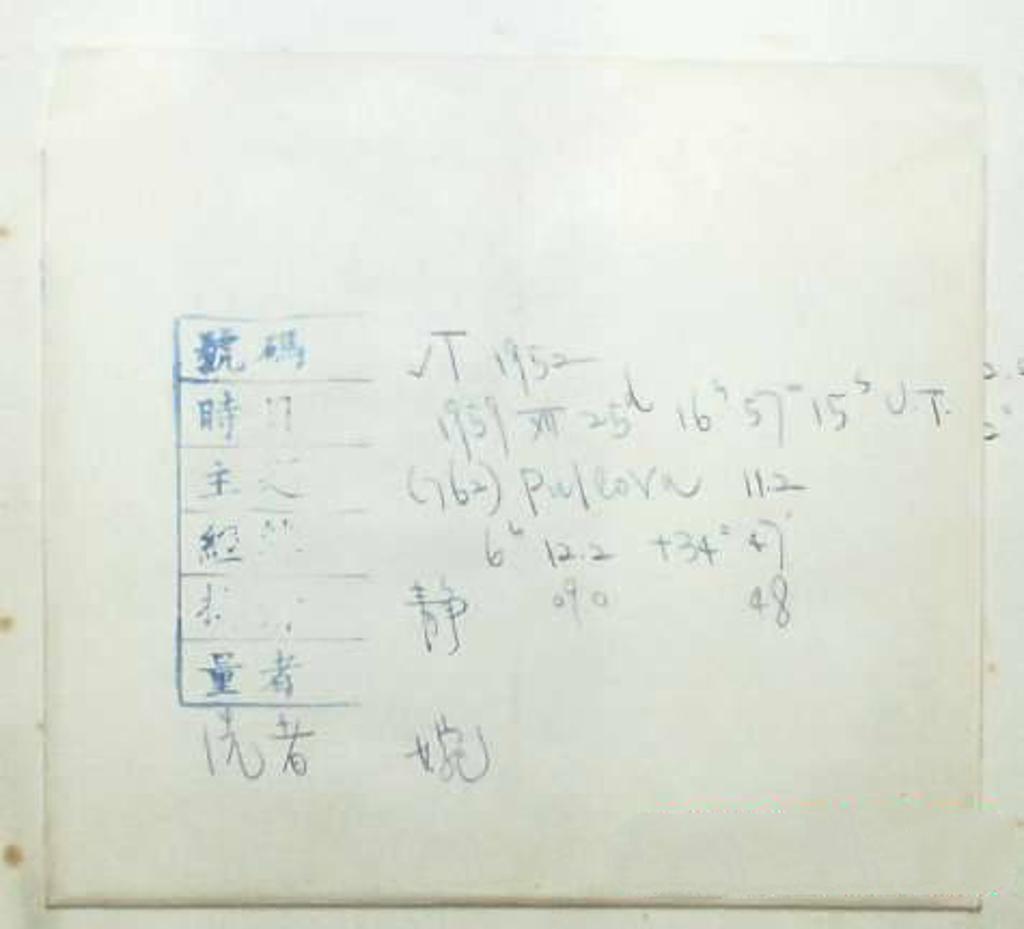 號碼 √T 1952
時 1959 XII 25d 16h 57m 15s U.T.
主 (762) Pulcova 11.2
經 6h 12.2 +34° 47'
静 090 48
量者
洗者 婉